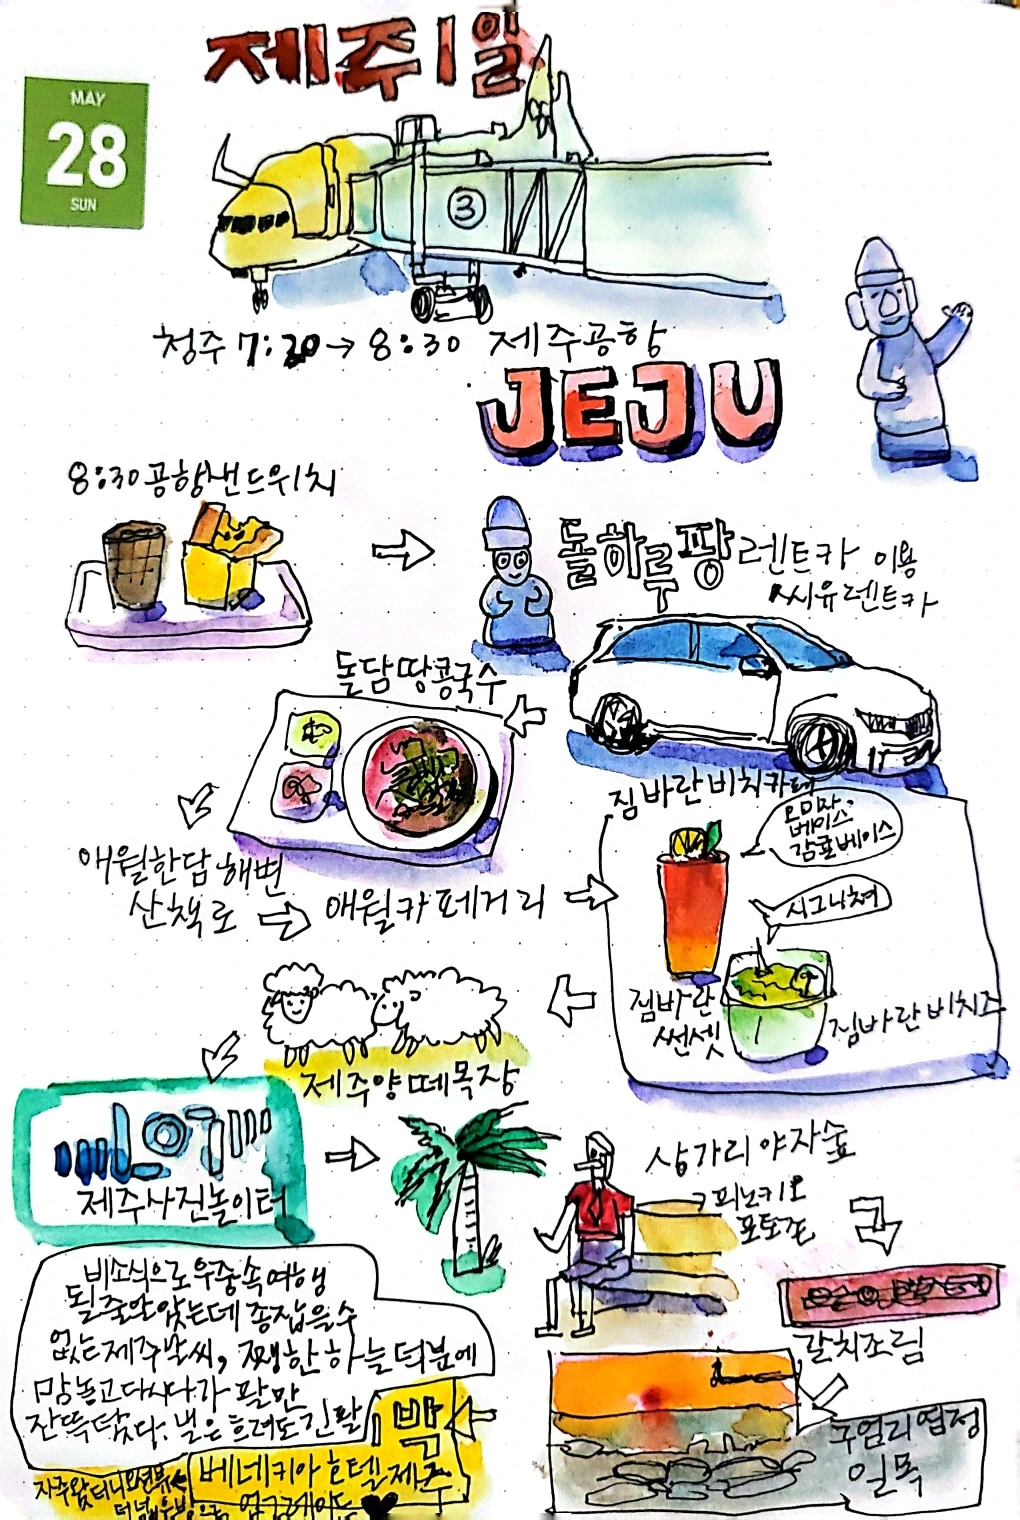 제주 1일
MAY
28
SUN
3
청주 7:20 → 8:30 제주공항
JEJU
8:30 공항샌드위치
돌하루팡 렌트카 이용
씨유렌트카
돌담 땅콩국수
짐바란 비치카페
오미자
베이스
감귤베이스
애월한담해변
산책로
애월카페거리
시그니쳐
짐바란
썬셋
짐바란 비치즈
제주양떼목장
제주사진놀이터
상가리 야자숲
피노키오
포토존
비소식으로 우중속 여행
될줄 알았는데 종잡을수
없는 제주날씨, 쨍한 하늘 덕분에
맘놓고 다니다가 팔만
잔뜩 탔다. 낼은 흐려도 긴팔
갈치조림
구엄리 염전
일몰
1박
베네키아 호텔 제주
자주왔더니 오션뷰
업그레이드